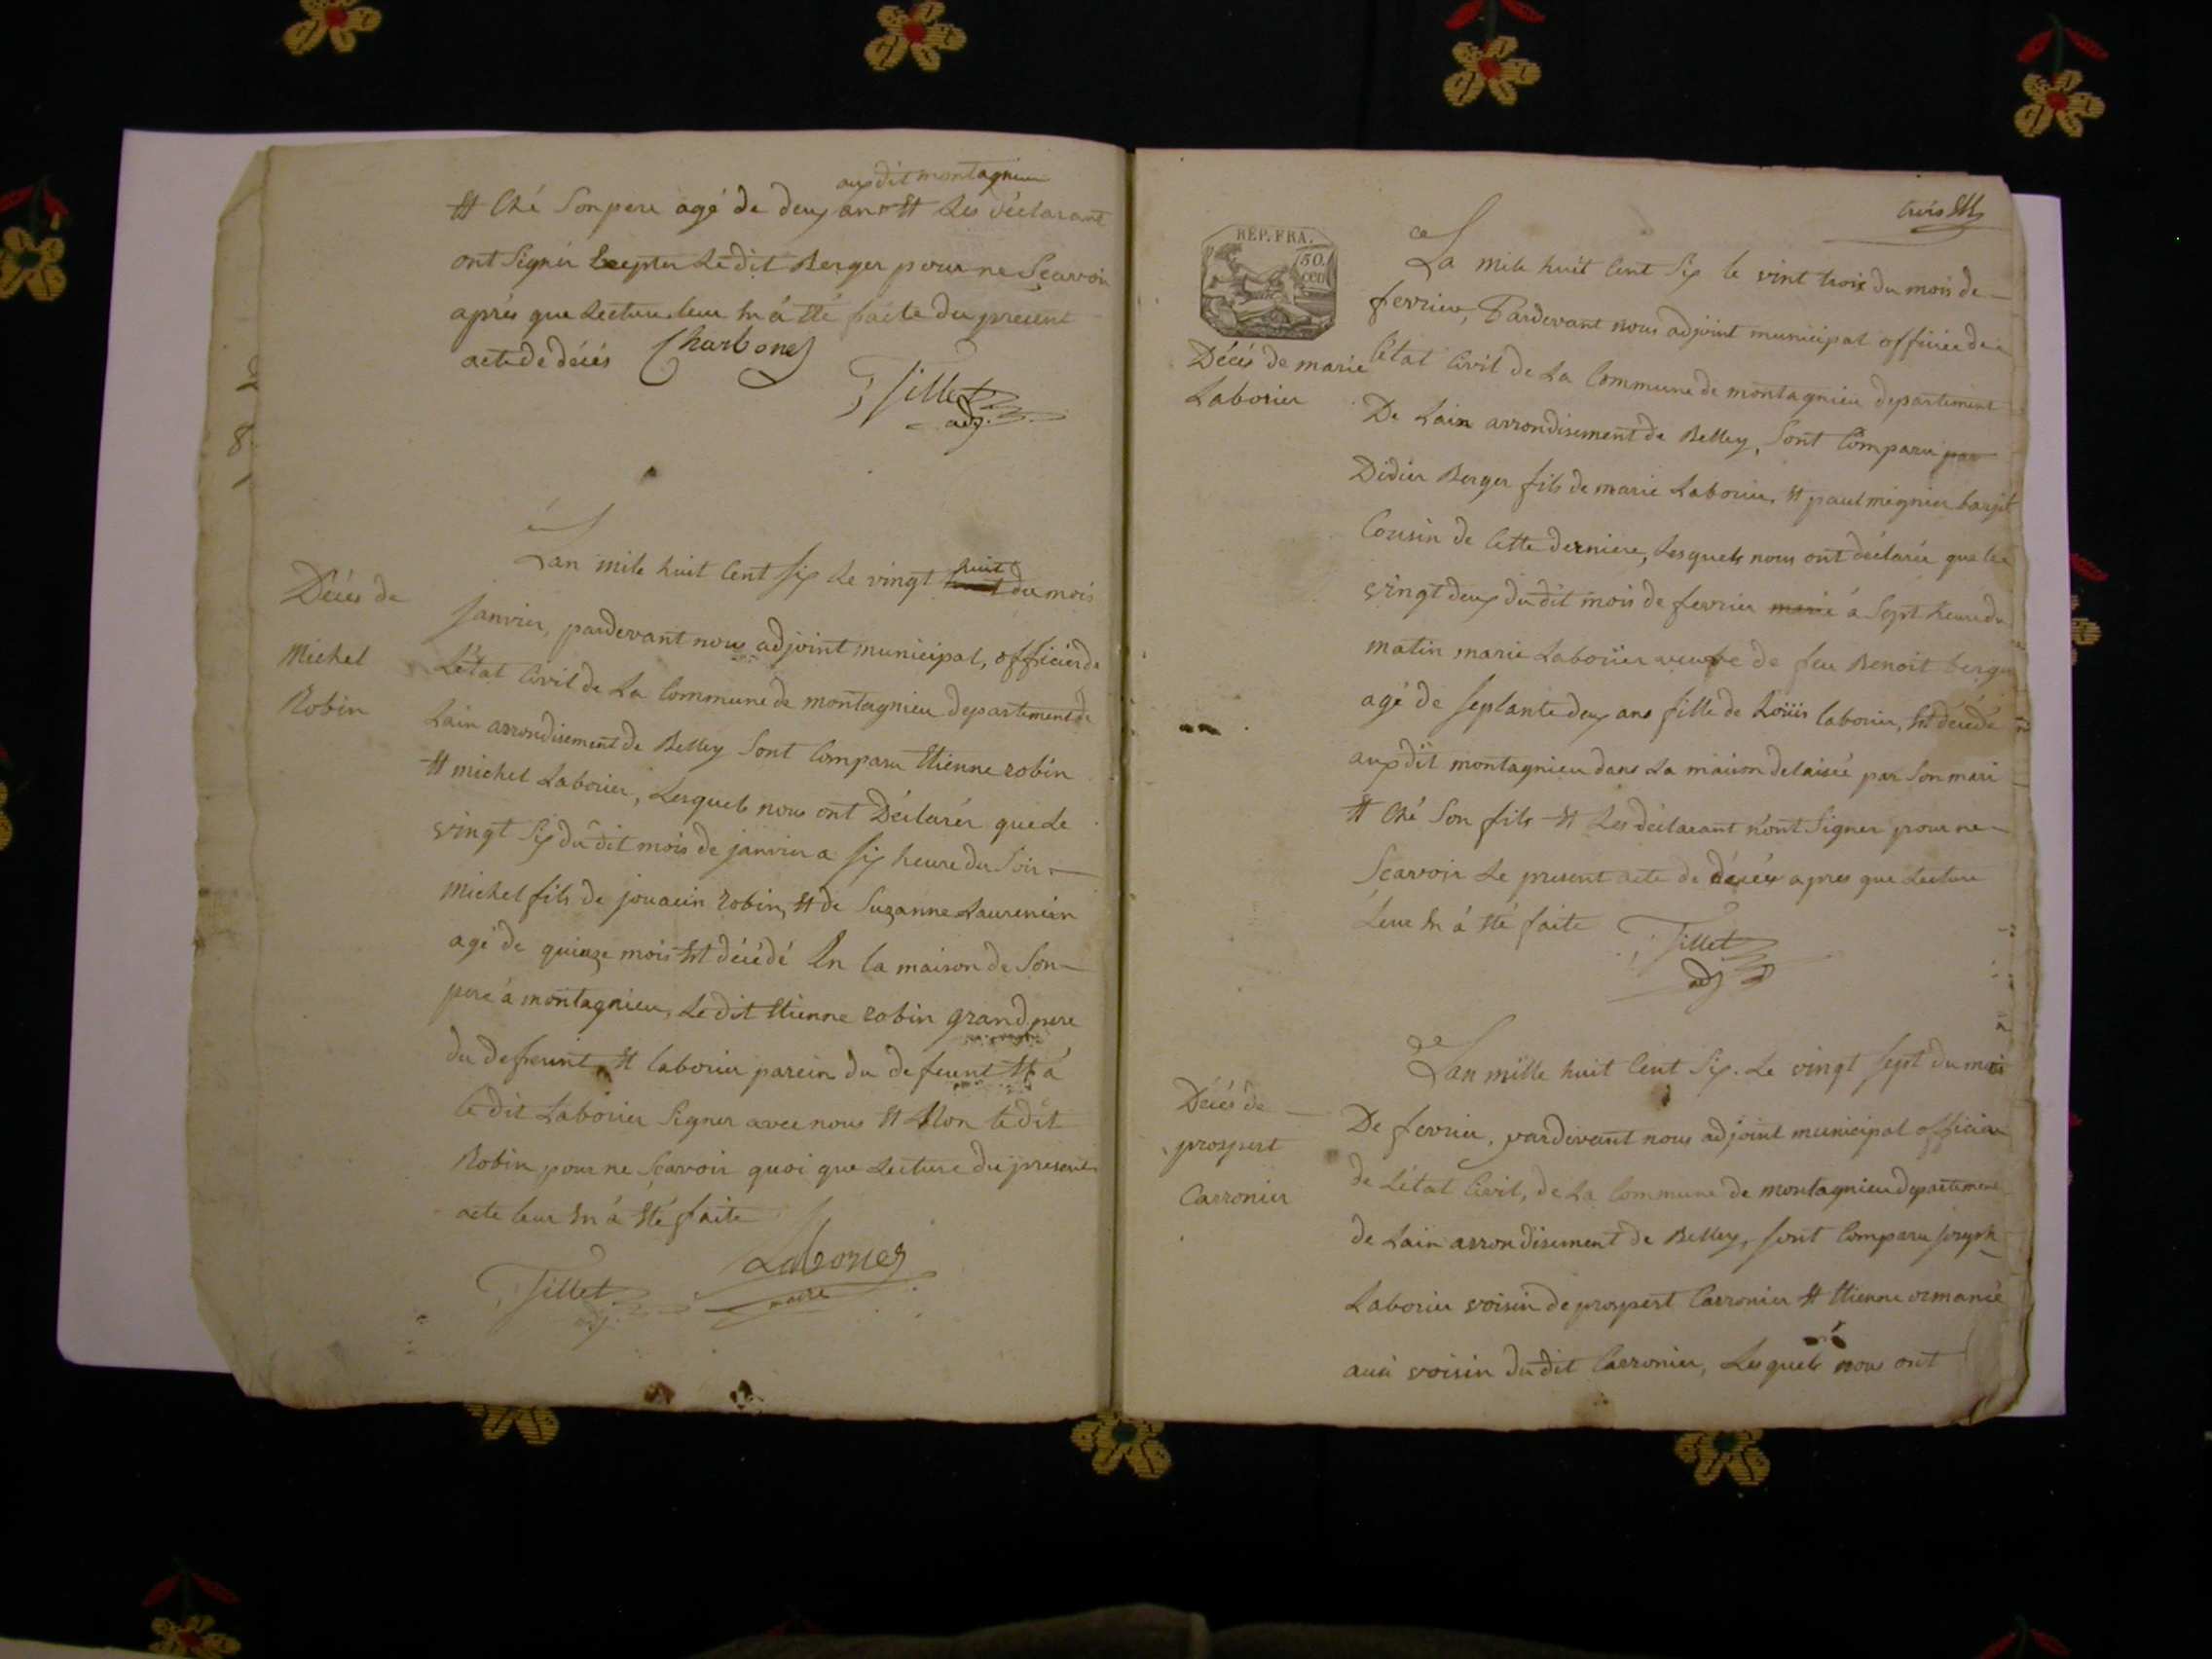 aux dit montagnieu
Et Ché Son pere agé de deux ans Et Les déclarant
ont Signér Exepter Ledit Berger pour ne Sçavoir
aprés que Lecture leur En á Eté faite du présent
acte de décés Charbone
Tillet
adj.
Lan mile huit Cent Six Le vingt huit du mois
Décés de
Michel
Robin
Janvier, pardevant nous adjoint municipal, officier de
L'état Civil de La Commune de montagnieu departement de
Lain arrondisement de Belley Sont Comparu Etienne robin
Et michel Laborier, Lesquels nous ont Déclarér que Le
vingt Six du dit mois de janvier a Six heure du Soir
Michel fils de jouacin robin, Et de Suzanne Laurencin
agé de quinze mois Est décédé En la maison de Son
pere á montagnieu, Ledit Etienne robin grand pere
du defreunt, Et laborier parein du defeunt Et á
Le dit Laborier Signer avec nous Et Non le dit
Robin pour ne Sçavoir quoi que Lecture du present
acte leur En á Eté faite
Laborier
maire
Tillet
adj.
trois
REP. FRA.
50
cen
La mile huit Cent Six le vint trois du mois de
fevrier, Pardevant nous adjoint municipal officier de
Décés de marie
Laborier
Létat Civil de La Commune de montagnieu departement
De Lain arrondisement de Belley, Sont Comparu par
Didier Berger fils de marie Laborier, Et paul mignier barjot
Cousin de Cette derniere, Lesquels nous ont déclarée que le
vingt deux du dit mois de fevrier marie á Sept heure du
matin marie Laborier veufve de feu Benoit berger
agé de Septante deux ans fille de Loüis laborier, Est décédé
aux dit montagnieu dans La maison delaiseé par Son mari
Et Ché Son fils Et Les déclarant n'ont Signer pour ne
Sçavoir Le present acte de décés apres que Lecture
Leur En á Eté faite
Tillet
adj
Lan mille huit Cent Six. Le vingt Sept du mois
Décés de
prospert
Carronier
De fevrier, pardevant nous adjoint municipal officier
de L'état Civil, de La Commune de montagnieu departement
de Lain arrondisement de Belley, Sont Comparu Joseph
Laborier voisin de prospert Carronier Et Etienne ormancé
ausi voisin du dit Carronier, Lesquels nous ont